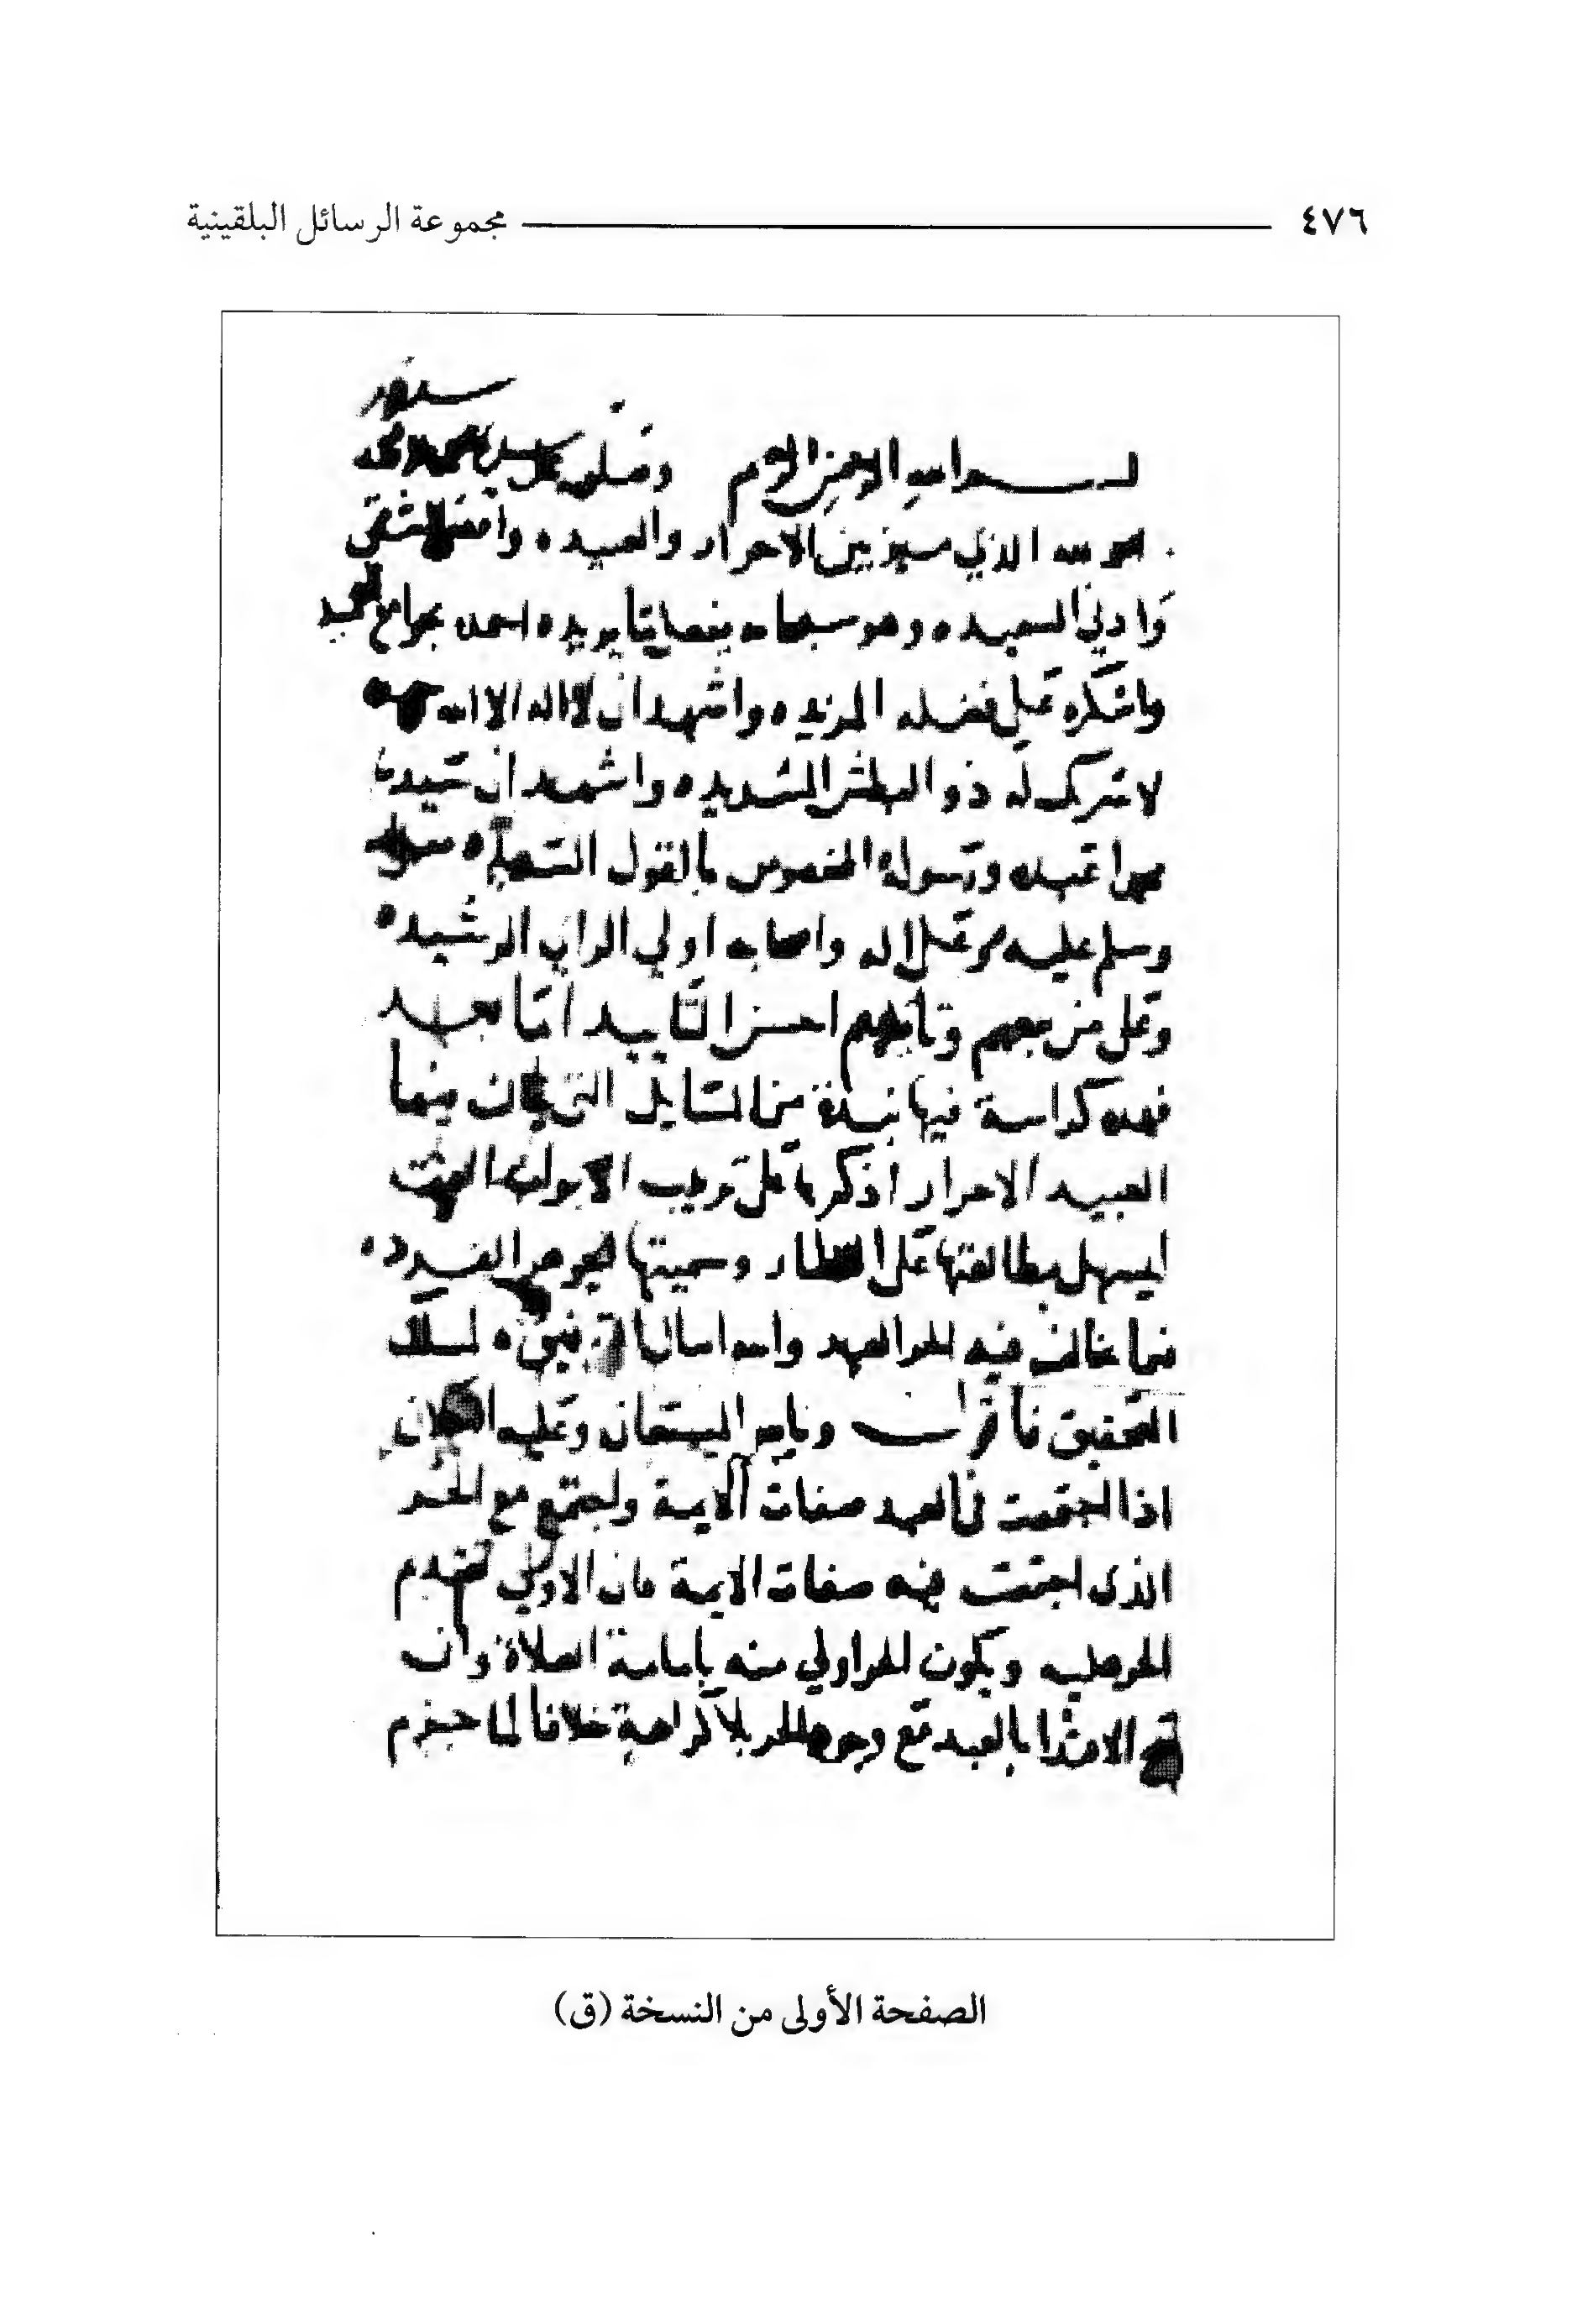 ٤٧٦ مجموعة الرسائل البلقينية
بسم الله الرحمن الرحيم وصلى الله على سيدنا محمد
الحمد لله الذي ميز بين الاحرار والعبيد
وادنى السعيد وهو سبحانه يفعل ما يريد احمده بجوامع التحميد
واشكره على فضله المزيد واشهد ان لا اله الا الله وحده
لا شريك له ذو البطش الشديد واشهد ان سيدنا
محمدا عبده ورسوله المخصوص بالقول السديد صلى الله
وسلم عليه وعلى اله واصحابه اولي الراي الرشيد
وعلى من تبعهم احسن التاييد اما بعد
فهذه كراسة فيها نبذة من المسايل التي
العبيد الاحرار اذكرها على ترتيب الابواب
ليسهل مطالعتها على وسميتها الجوهر الفرد
فيما خالف فيه الحر العبد والله اسال ان لسلك
التحقيق وبالله المستعان وعليه التكلان
اذا اجتمعت في العبد صفات الايمة واجتمع مع الحر
الذي اجتمعت فيه صفات الايمة فان الاولى تقدم
الحر عليه ويكون الحر اولى منه بامامة الصلاة وان
الاقتدا بالعبد مع وجود الحر بلا كراهية خلافا لما جزم
الصفحة الأولى من النسخة (ق)